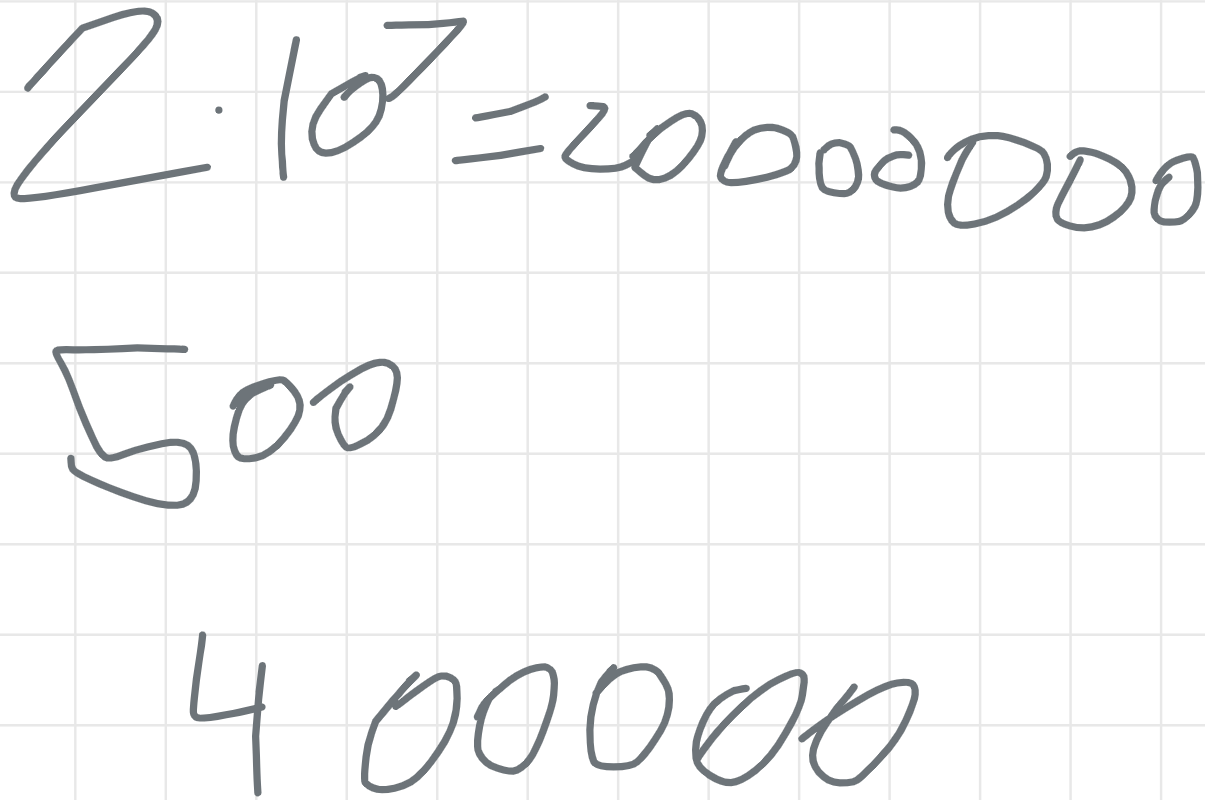 2 · 10⁷ = 20000000
500
400000